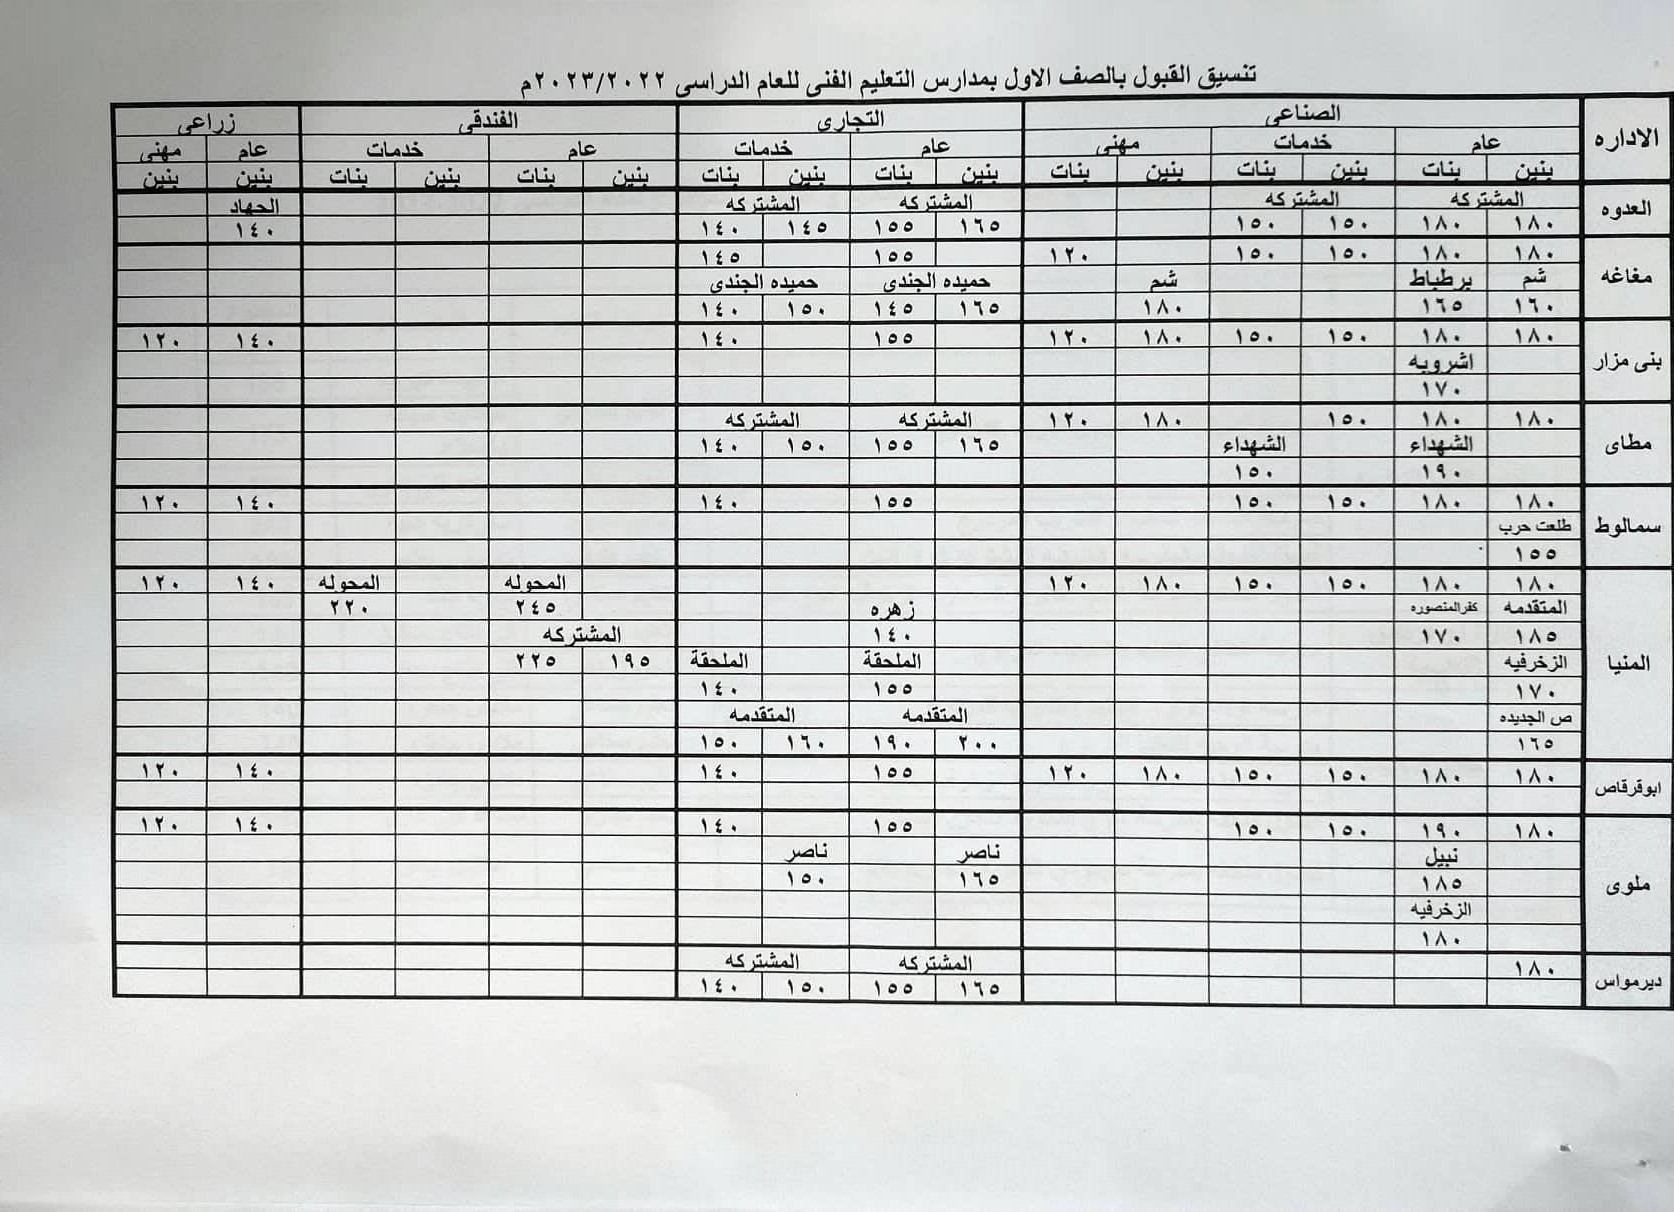 تنسيق القبول بالصف الاول بمدارس التعليم الفنى للعام الدراسى ٢٠٢٣/٢٠٢٢م
الاداره الصناعى التجارى الفندقى زراعى
عام خدمات مهنى عام خدمات عام خدمات عام مهنى
بنين بنات بنين بنات بنين بنات بنين بنات بنين بنات بنين بنات بنين بنات بنين بنين
العدوه المشتركه المشتركه المشتركه المشتركه الجهاد
١٨٠ ١٨٠ ١٥٠ ١٥٠ ١٦٥ ١٥٥ ١٤٥ ١٤٠ ١٤٠
مغاغه ١٨٠ ١٨٠ ١٥٠ ١٥٠ ١٢٠ ١٥٥ ١٤٥
شم برطباط شم حميده الجندى حميده الجندى
١٦٠ ١٦٥ ١٨٠ ١٦٥ ١٤٥ ١٥٠ ١٤٠
بنى مزار ١٨٠ ١٨٠ ١٥٠ ١٥٠ ١٨٠ ١٢٠ ١٥٥ ١٤٠ ١٤٠ ١٢٠
اشروبه
١٧٠
مطاى ١٨٠ ١٨٠ ١٥٠ ١٨٠ ١٢٠ المشتركه المشتركه
الشهداء الشهداء ١٦٥ ١٥٥ ١٥٠ ١٤٠
١٩٠ ١٥٠
سمالوط ١٨٠ ١٨٠ ١٥٠ ١٥٠ ١٥٥ ١٤٠ ١٤٠ ١٢٠
طلعت حرب
١٥٥
المنيا ١٨٠ ١٨٠ ١٥٠ ١٥٠ ١٨٠ ١٢٠ المحوله المحوله ١٤٠ ١٢٠
المتقدمه كفرالمنصوره زهره ٢٤٥ ٢٢٠
١٨٥ ١٧٠ ١٤٠ المشتركه
الزخرفيه الملحقة الملحقة ١٩٥ ٢٢٥
١٧٠ ١٥٥ ١٤٠
ص الجديده المتقدمه المتقدمه
١٦٥ ٢٠٠ ١٩٠ ١٦٠ ١٥٠
ابوقرقاص ١٨٠ ١٨٠ ١٥٠ ١٥٠ ١٨٠ ١٢٠ ١٥٥ ١٤٠ ١٤٠ ١٢٠
ملوى ١٨٠ ١٩٠ ١٥٠ ١٥٠ ١٥٥ ١٤٠ ١٤٠ ١٢٠
نبيل ناصر ناصر
١٨٥ ١٦٥ ١٥٠
الزخرفيه
١٨٠
ديرمواس ١٨٠ المشتركه المشتركه
١٦٥ ١٥٥ ١٥٠ ١٤٠